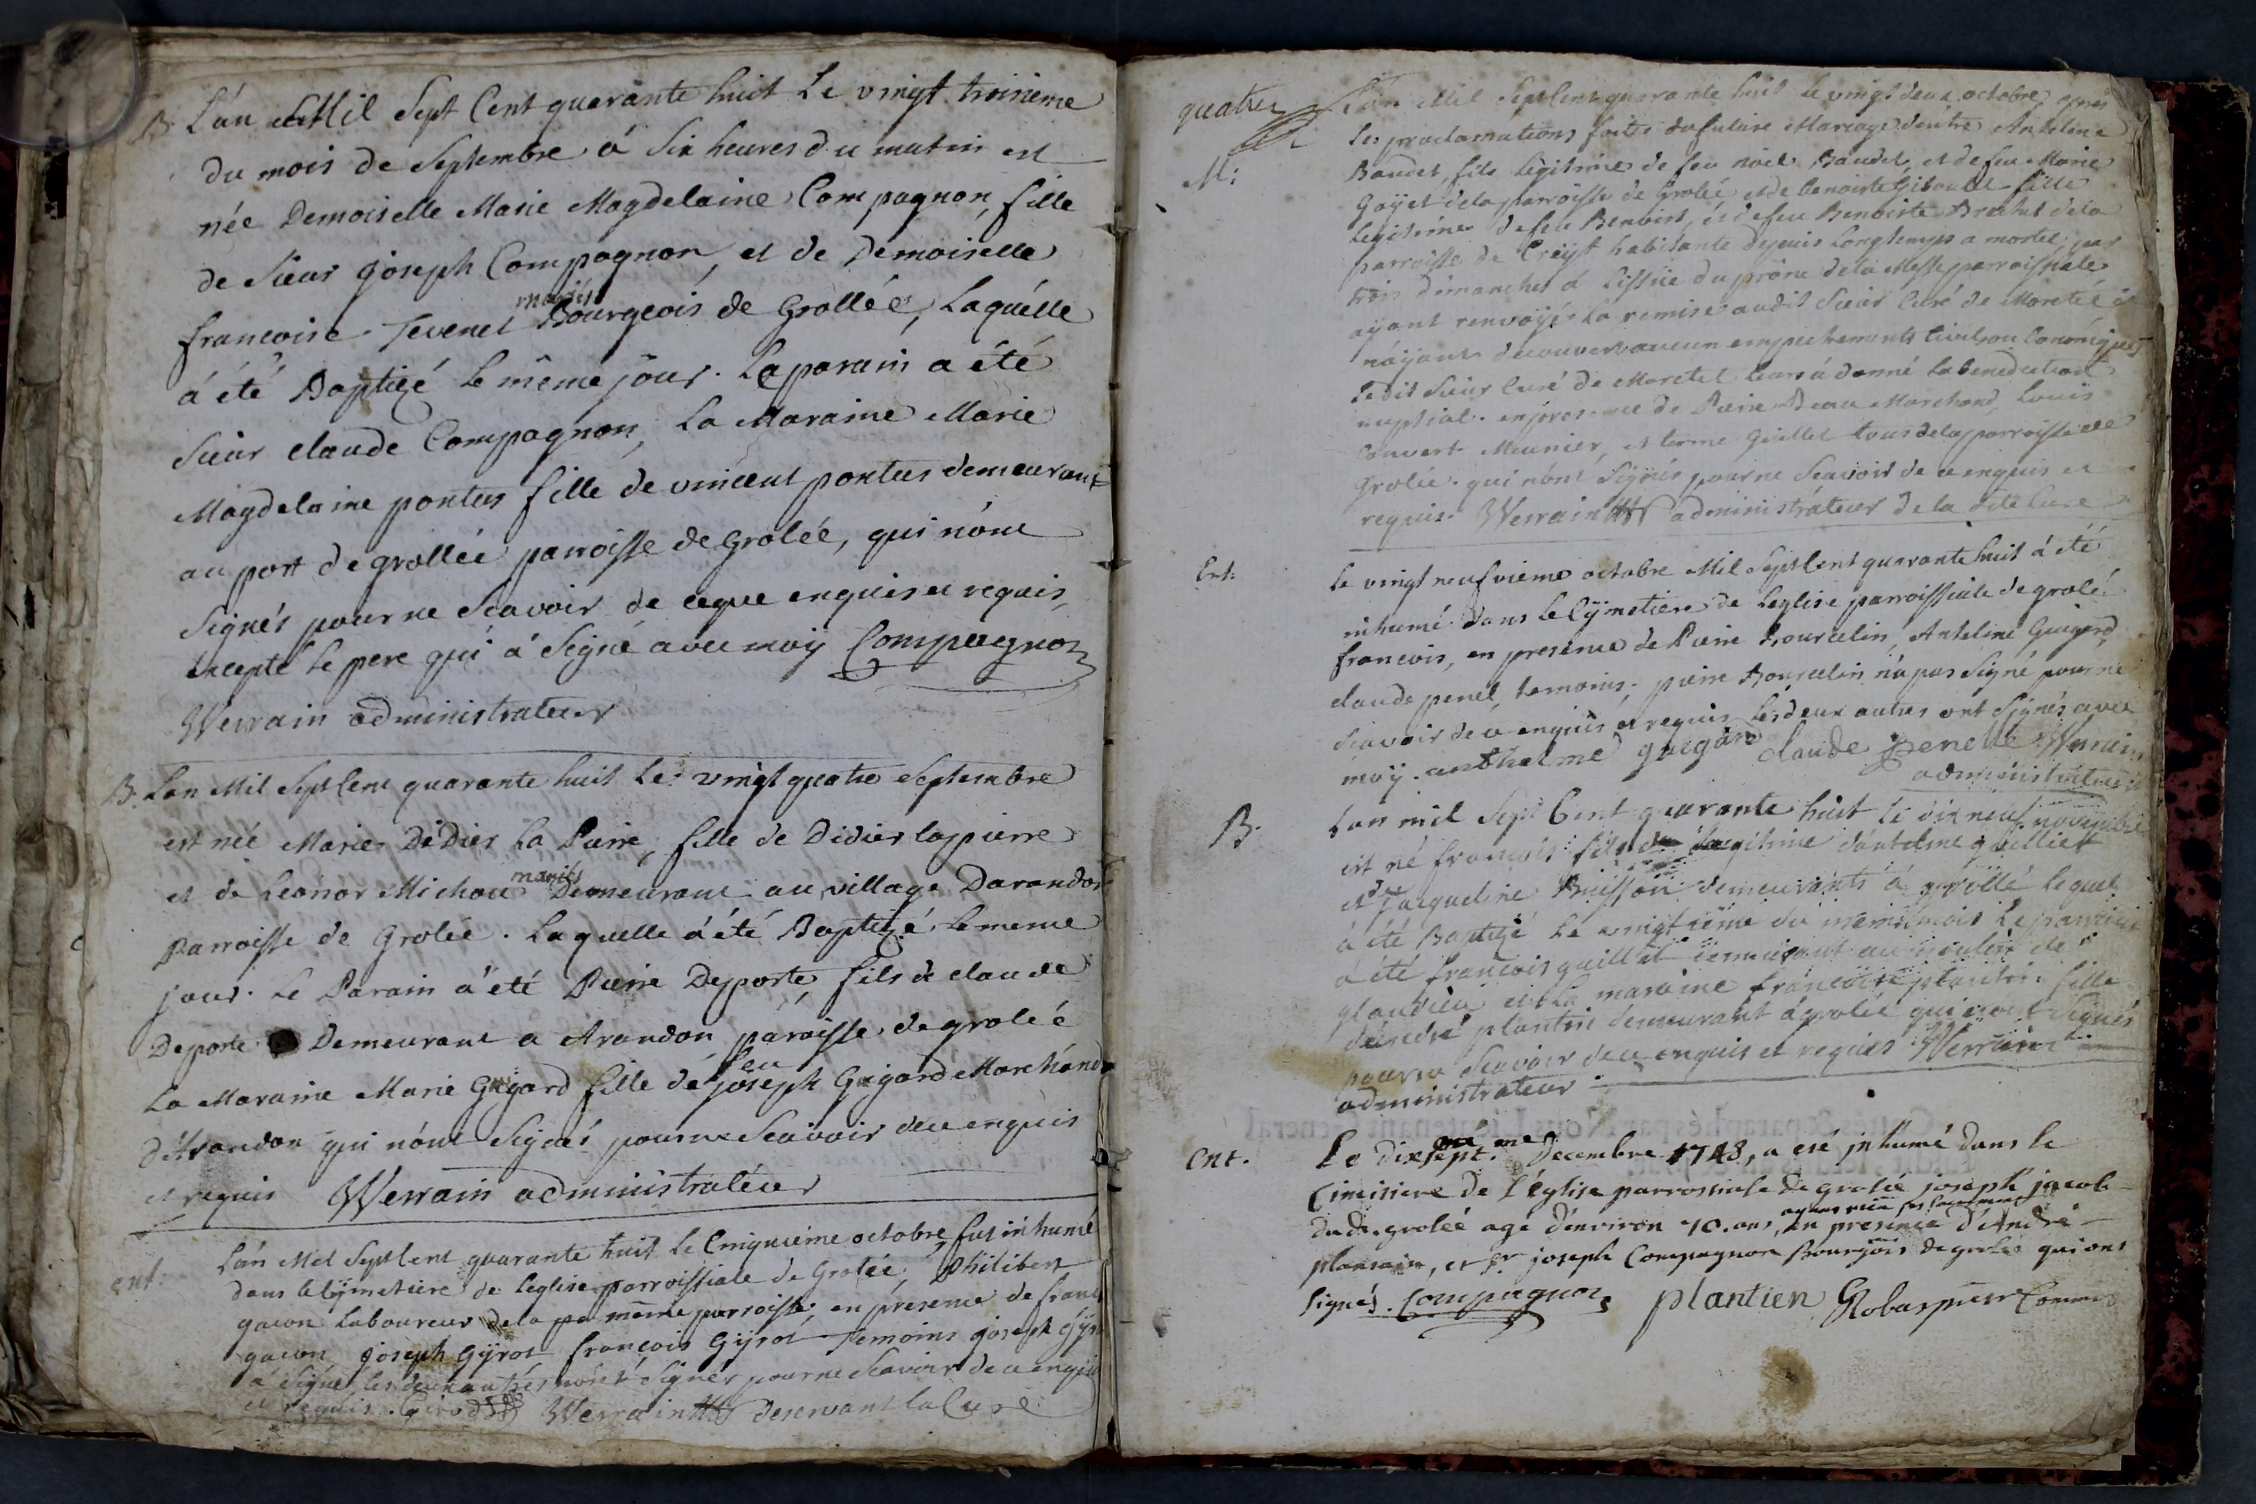 B. L'an Mil Sept Cent quarante huit Le vingt troisieme
du mois de Septembre à Six heures du matin est
née Demoiselle Marie Magdelaine Compagnon, fille
de Sieur Joseph Compagnon, et de Demoiselle
mariés
francoise Tevenet Bourgeois de Grollée, Laquelle
à été Baptizé le même jour. Le parain a été
Sieur claude Compagnon, La Maraine Marie
Magdelaine pontus fille de vincent pontus demeurant
au port de grollée parroisse de Grolée, qui n'ont
Signés pour ne Scavoir de ce que enquis et requis,
excepté le pere qui à Signé avec moy Compagnon
Werrain administrateur
B. Lan Mil Sept Cent quarante huit Le vingt quatre Septembre
est née Marie Didier La Pierre, fille de Didier lapierre
mariés
et de Leonor Michou Demeurant au village Darandon
Parroisse de Grolée. Laquelle à été Baptizé le meme
jour. Le Parain à été Pierre Deporte, fils de claude
Deporte Demeurant a Arandon paroisse de grolée
feu
La Maraine Marie Gigard fille de joseph Gigard Marchand
d'Arandon qui n'ont Signés pour ne Scavoir de ce enquis
et requis Werrain administrateur
ent. L'an Mil Sept Cent quarante huit Le Cinquieme octobre fut inhumé
dans le Cymetiere de leglise parroissiale de Grolée, Philibert
gacon Laboureur de la pa même parroisse, en presence de
gacon, joseph Gyrot françois Gyrot Temoins joseph
à Signé, les deux autres n'ont Signés pour ne Scavoir de ce
et requis. Girod Werrain deservant la Cure
quatre
M: L'an Mil Sept Cent quarante huit le vingt deux octobre, après
les proclamations faites du future Mariage d'entre Antelme
Baudet, fils légitime de feu noël Baudet, et de feu Marie
Goyet de la parroisse de Grolée et de benoiste fille
Legitime de feu Benoist, et de feu Benoiste Brochet de la
parroisse de Creyst habitante depuis Longtemps a mortel, par
trois dimanches à L'issüe du prône de la Messe parroissiale
ayant renvoyé la remise audit Sieur Curé de Moretel et
n'ayant decouvert aucun empechements Civil ou Canonique
Le dit Sieur Curé de Moretel leurs à donné la benediction
nuptial. en presence de Pierre Beau Marchand, Louis
Convert Meunier, et Guillet tous de la parroisse de
Grolée. qui n'ont Signés pour ne Scavoir de ce enquis et
requis. Werrain administrateur de la dite Cure
Ent: Le vingt neufvieme octobre Mil Sept Cent quarante huit à été
inhumé dans le Cymetiere de Leglise parroissiale de grolé
francois, en presence de Pierre Bourcelin, Antelme Guigard
claude penel, temoins; pierre Bourcelin n'a pas Signé pour ne
Scavoir de ce enquis et requis Les deux autres ont Signés avec
moy. anthelme guigard claude penelle Werrain
administrateur
B. L'an mil Sept Cent quarante huit le dix neuf novembre
est né francois fils légitime d'antelme guilliet
et de jacqueline Buisson demeurants à grollé lequel
à été Baptizé le vingtieme du meme mois Le parrain
à été francois guillet demeurant au moulin de
glandieu et la maraine francoise plantin fille
d'andré plantin demeurant à grolée qui n'ont Signés
pour ne Scavoir de ce enquis et requis Werrain
administrateur.
Ent. Le Dixsept.me Decembre 1748, a esé inhumé dans le
Cimitiere de L'église parrossiale de grolée joseph jacob
ayant reçu ses sacrements
dud. grolée agé d'environ 70. ans, en presence d'André
plantain, et Sr joseph Compagnon Bourgois de grolée qui ont
Signés. Compagnon plantien Robaspierr